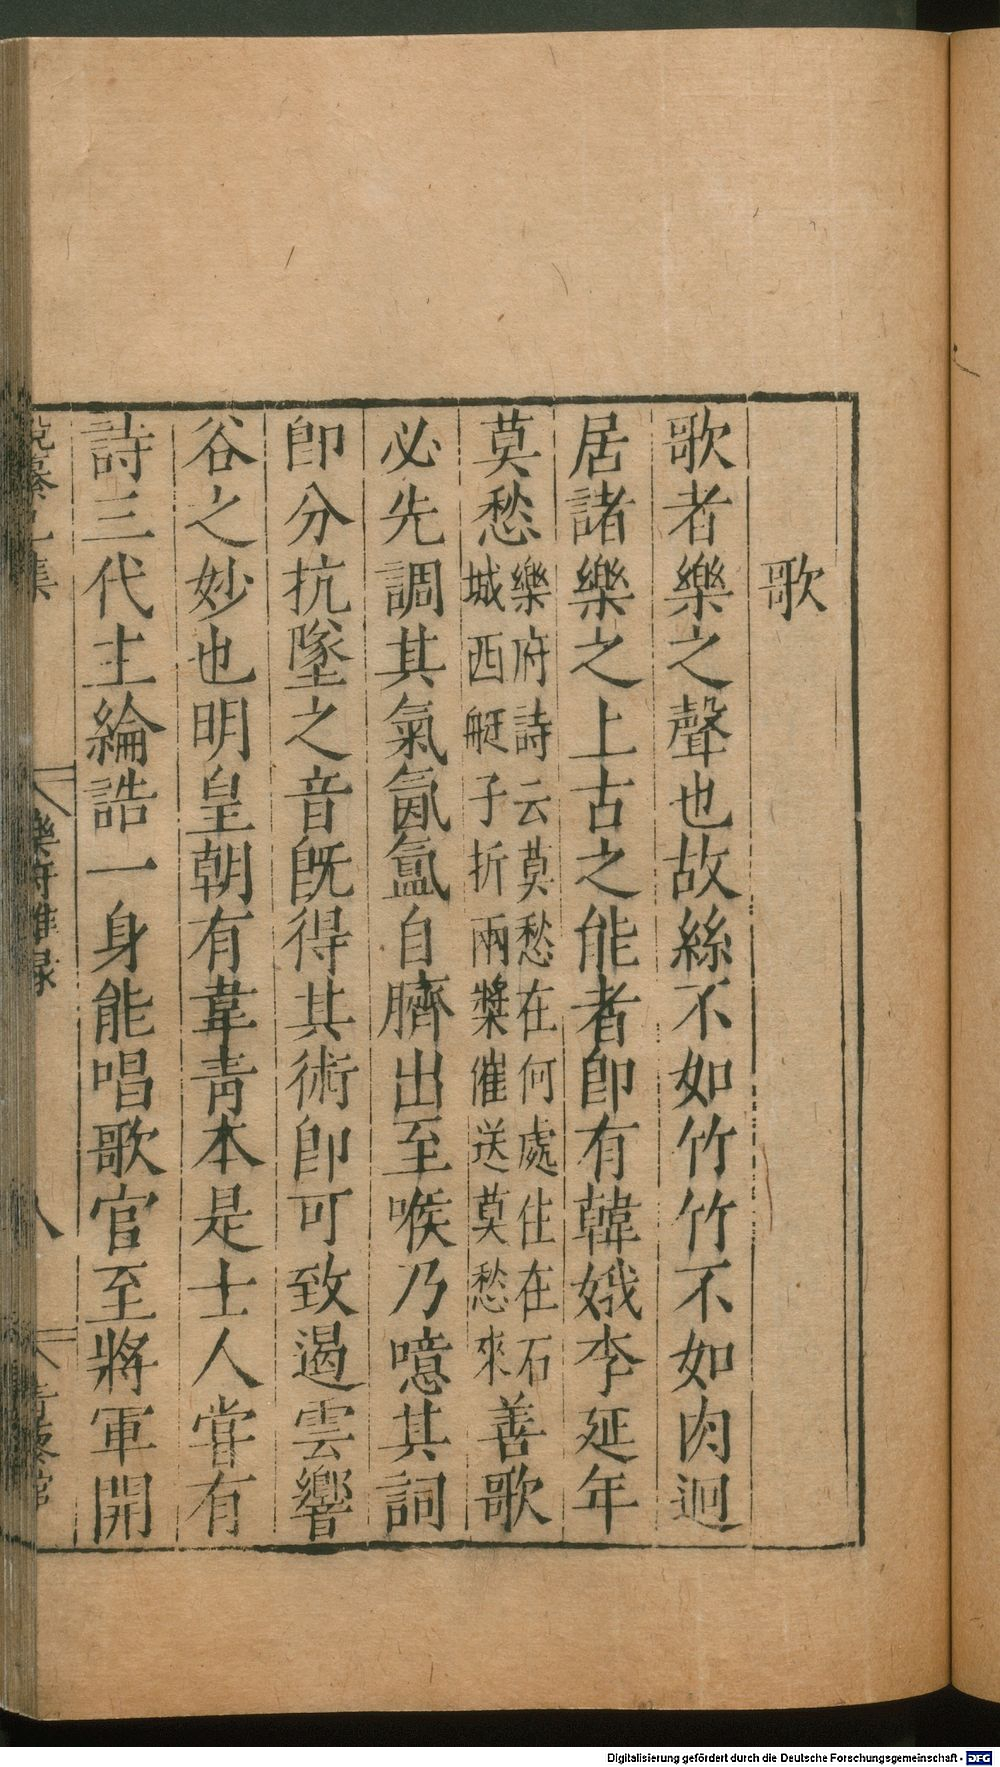 歌
歌者樂之聲也故絲不如竹竹不如肉迥
居諸樂之上古之能者卽有韓娥李延年
莫愁樂府詩云莫愁在何處住在石
城西艇子折兩槳催送莫愁來善歌
必先調其氣氤氳自臍出至喉乃噫其詞
卽分抗墜之音旣得其術卽可致遏雲響
谷之妙也明皇朝有韋青本是士人嘗有
詩三代主綸誥一身能唱歌官至將軍開
樂府雜录
八
Digitalisierung gefördert durch die Deutsche Forschungsgemeinschaft - DFG